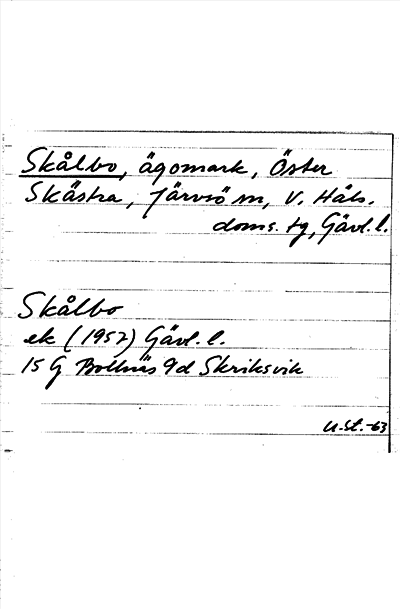 Skålbo, ägomark, Öster
Skästra, Järvsö sn, V. Häls.
doms. tg, Gävl. l.
Skålbo
ek (1957) Gävl. l.
15 G Bollnäs 9d Skriksvik
U.St. -63